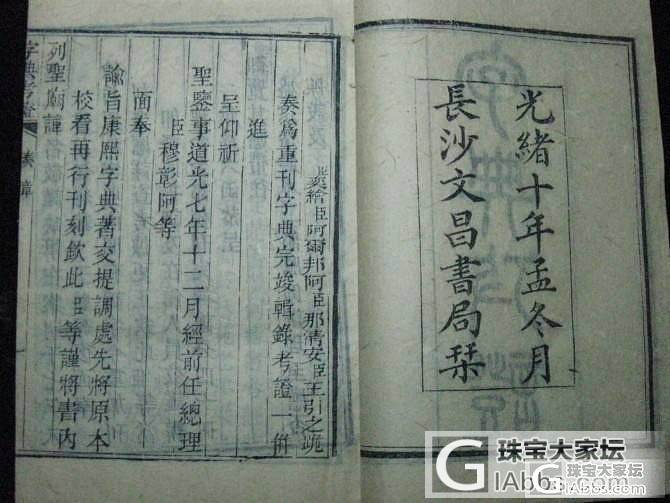 光緒十年孟冬月
長沙文昌書局栞
奕繪臣阿爾邦阿臣那清安臣王引之跪
奏爲重刊字典完竣輯錄考證一併
進
呈仰祈
聖鑒事道光七年十二月經前任總理
臣穆彰阿等
面奉
諭旨康熙字典著交提調處先將原本
校看再行刊刻欽此臣等謹將書內
列聖廟諱
字典考證
奏章
珠宝大家坛
GIAbbs.com